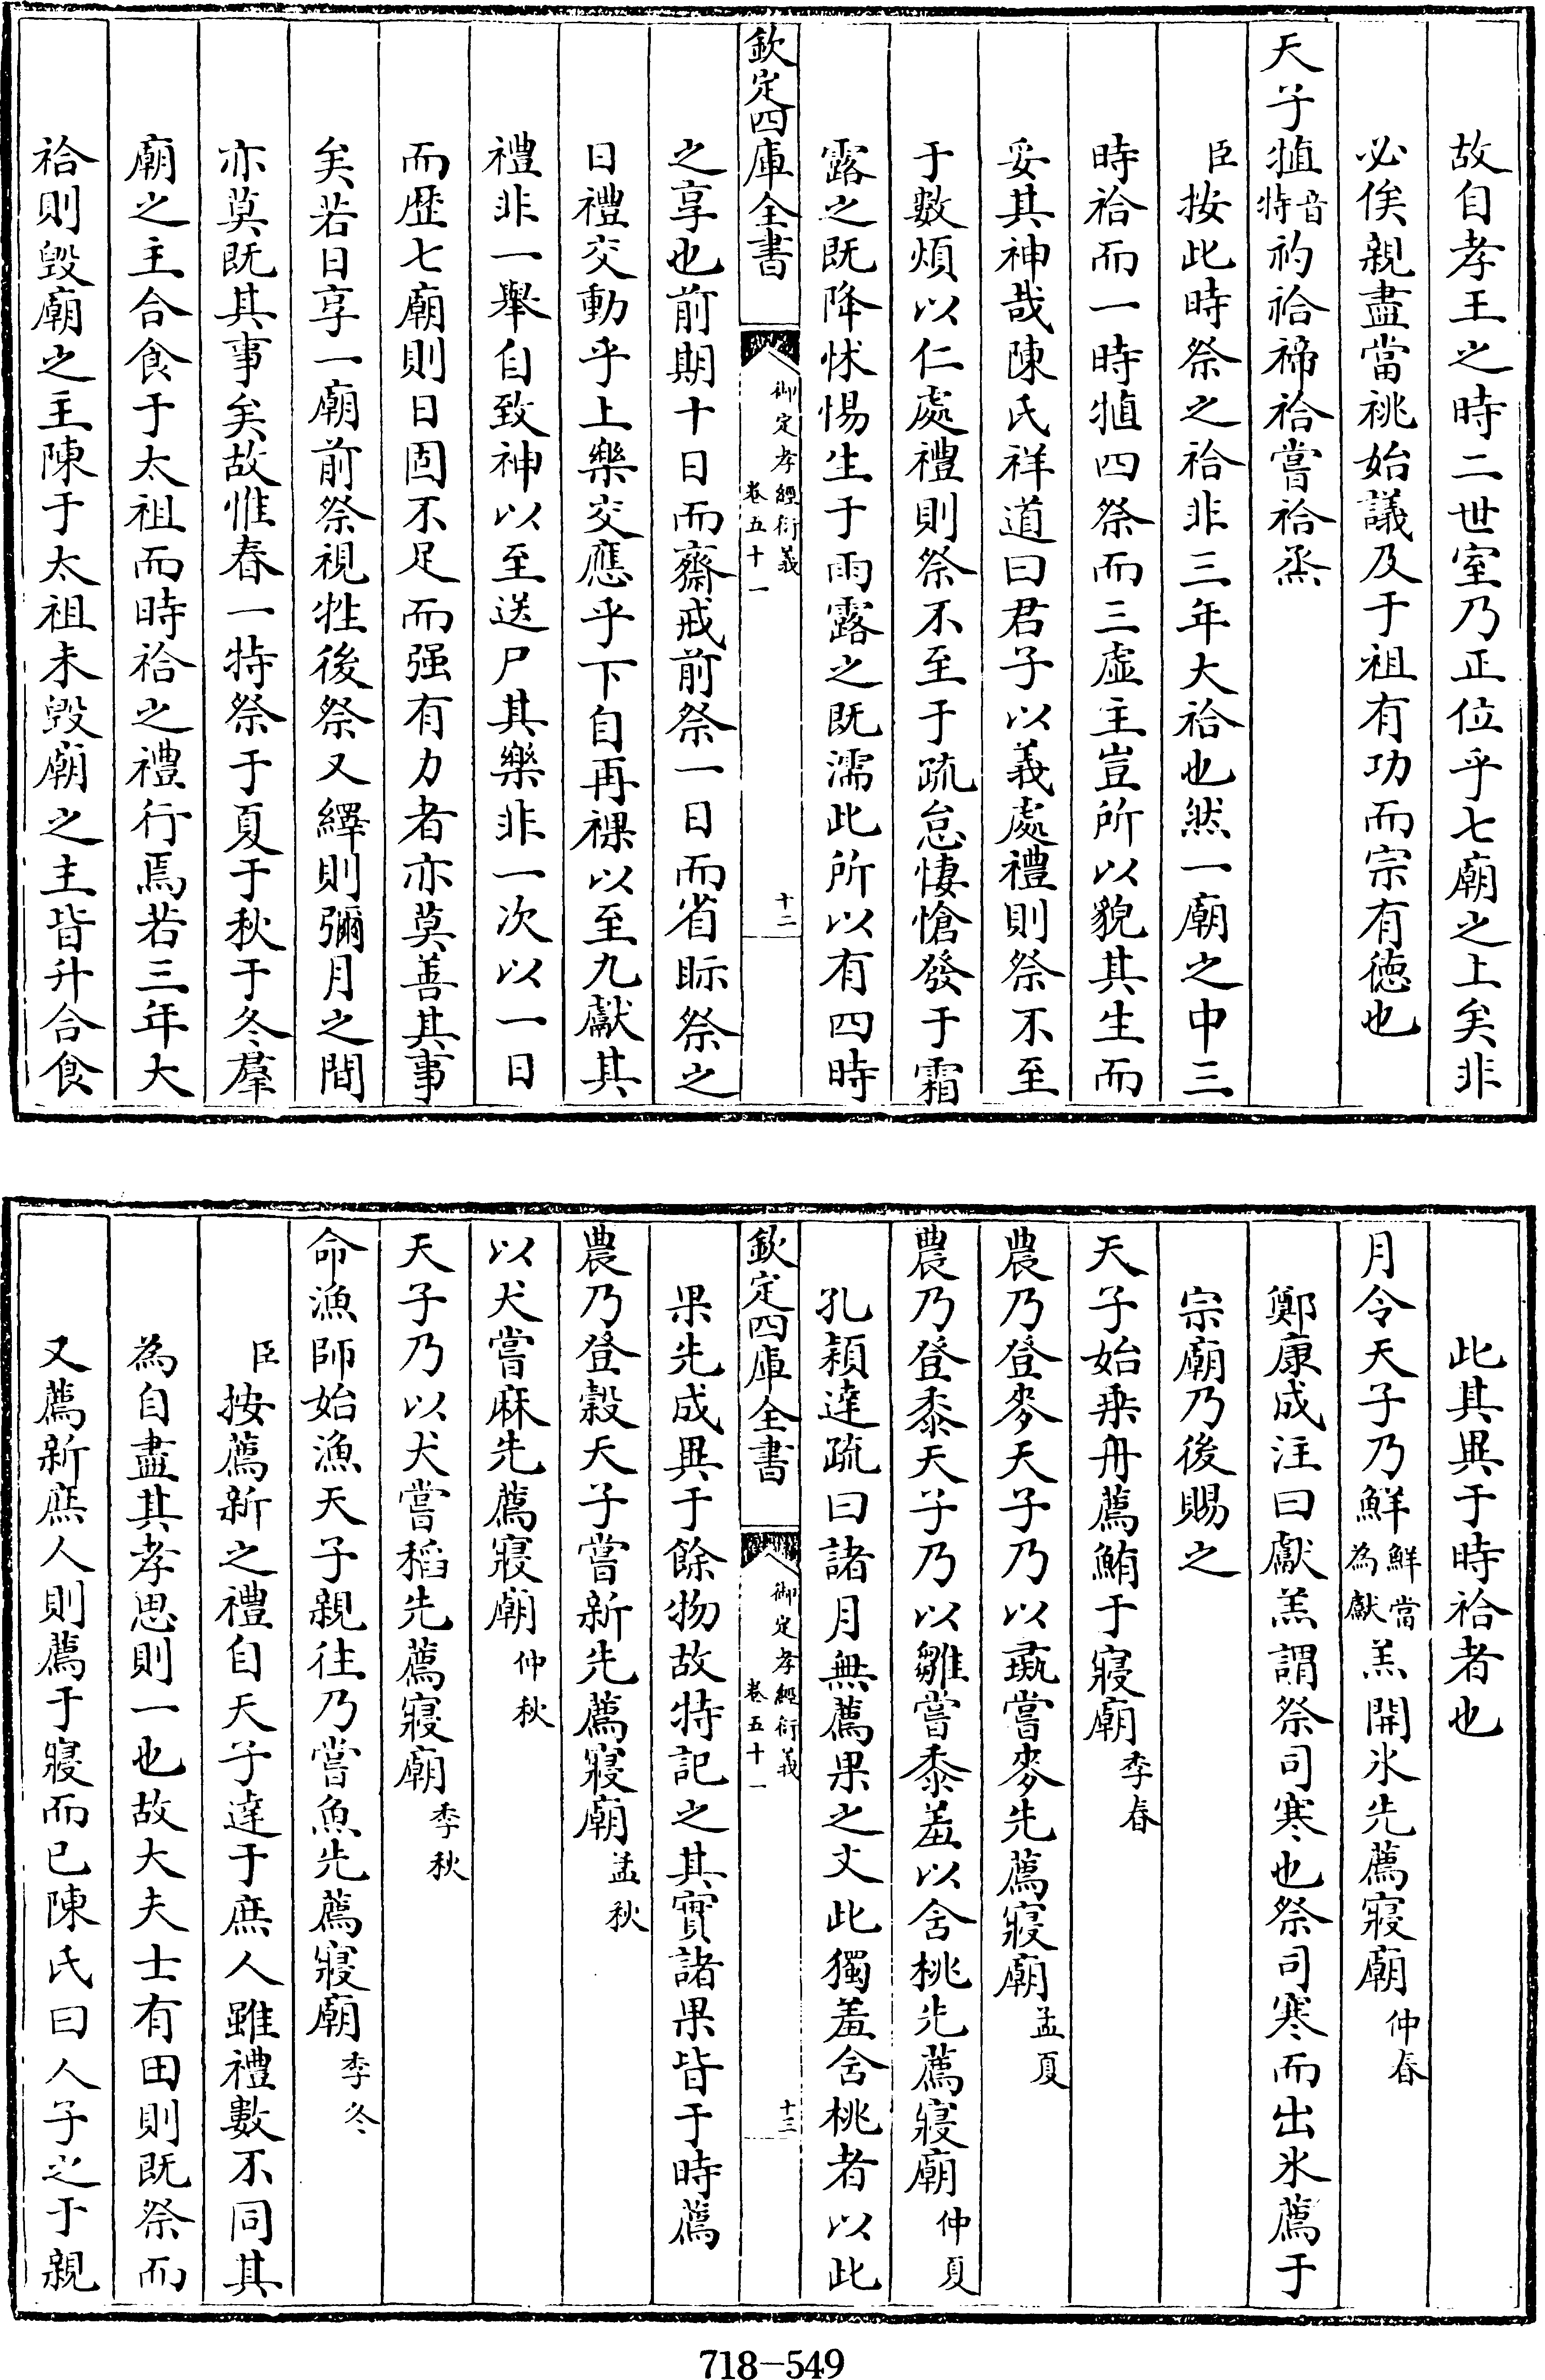 故自孝王之時二世室乃正位乎七廟之上矣非
必俟親盡當祧始議及于祖有功而宗有徳也
天子犆音特礿祫禘祫嘗祫烝
臣按此時祭之祫非三年大祫也然一廟之中三
時祫而一時犆四祭而三虛主豈所以貌其生而
妥其神哉陳氏祥道曰君子以義處禮則祭不至
于數煩以仁處禮則祭不至于疏怠悽愴發于霜
露之既降怵惕生于雨露之既濡此所以有四時
欽定四庫全書 御定孝經衍義 卷五十一 十二
之享也前期十日而齋戒前祭一日而省眎祭之
日禮交動乎上樂交應乎下自再祼以至九獻其
禮非一舉自致神以至送尸其樂非一次以一日
而歴七廟則日固不足而强有力者亦莫善其事
矣若日享一廟前祭視牲後祭又繹則彌月之間
亦莫既其事矣故惟春一特祭于夏于秋于冬羣
廟之主合食于太祖而時祫之禮行焉若三年大
祫則毁廟之主陳于太祖未毁廟之主皆升合食
此其異于時祫者也
月令天子乃鮮鮮當為獻羔開氷先薦寢廟仲春
鄭康成注曰獻羔謂祭司寒也祭司寒而出氷薦于
宗廟乃後賜之
天子始乗舟薦鮪于寢廟季春
農乃登麥天子乃以彘嘗麥先薦寢廟孟夏
農乃登黍天子乃以雛嘗黍羞以含桃先薦寢廟仲夏
孔穎達疏曰諸月無薦果之文此獨羞含桃者以此
欽定四庫全書 御定孝經衍義 卷五十一 十三
果先成異于餘物故特記之其實諸果皆于時薦
農乃登榖天子嘗新先薦寢廟孟秋
以犬嘗麻先薦寢廟仲秋
天子乃以犬嘗稻先薦寢廟季秋
命漁師始漁天子親往乃嘗魚先薦寢廟季冬
臣按薦新之禮自天子達于庶人雖禮數不同其
為自盡其孝思則一也故大夫士有田則既祭而
又薦新庶人則薦于寢而已陳氏曰人子之于親
718-549